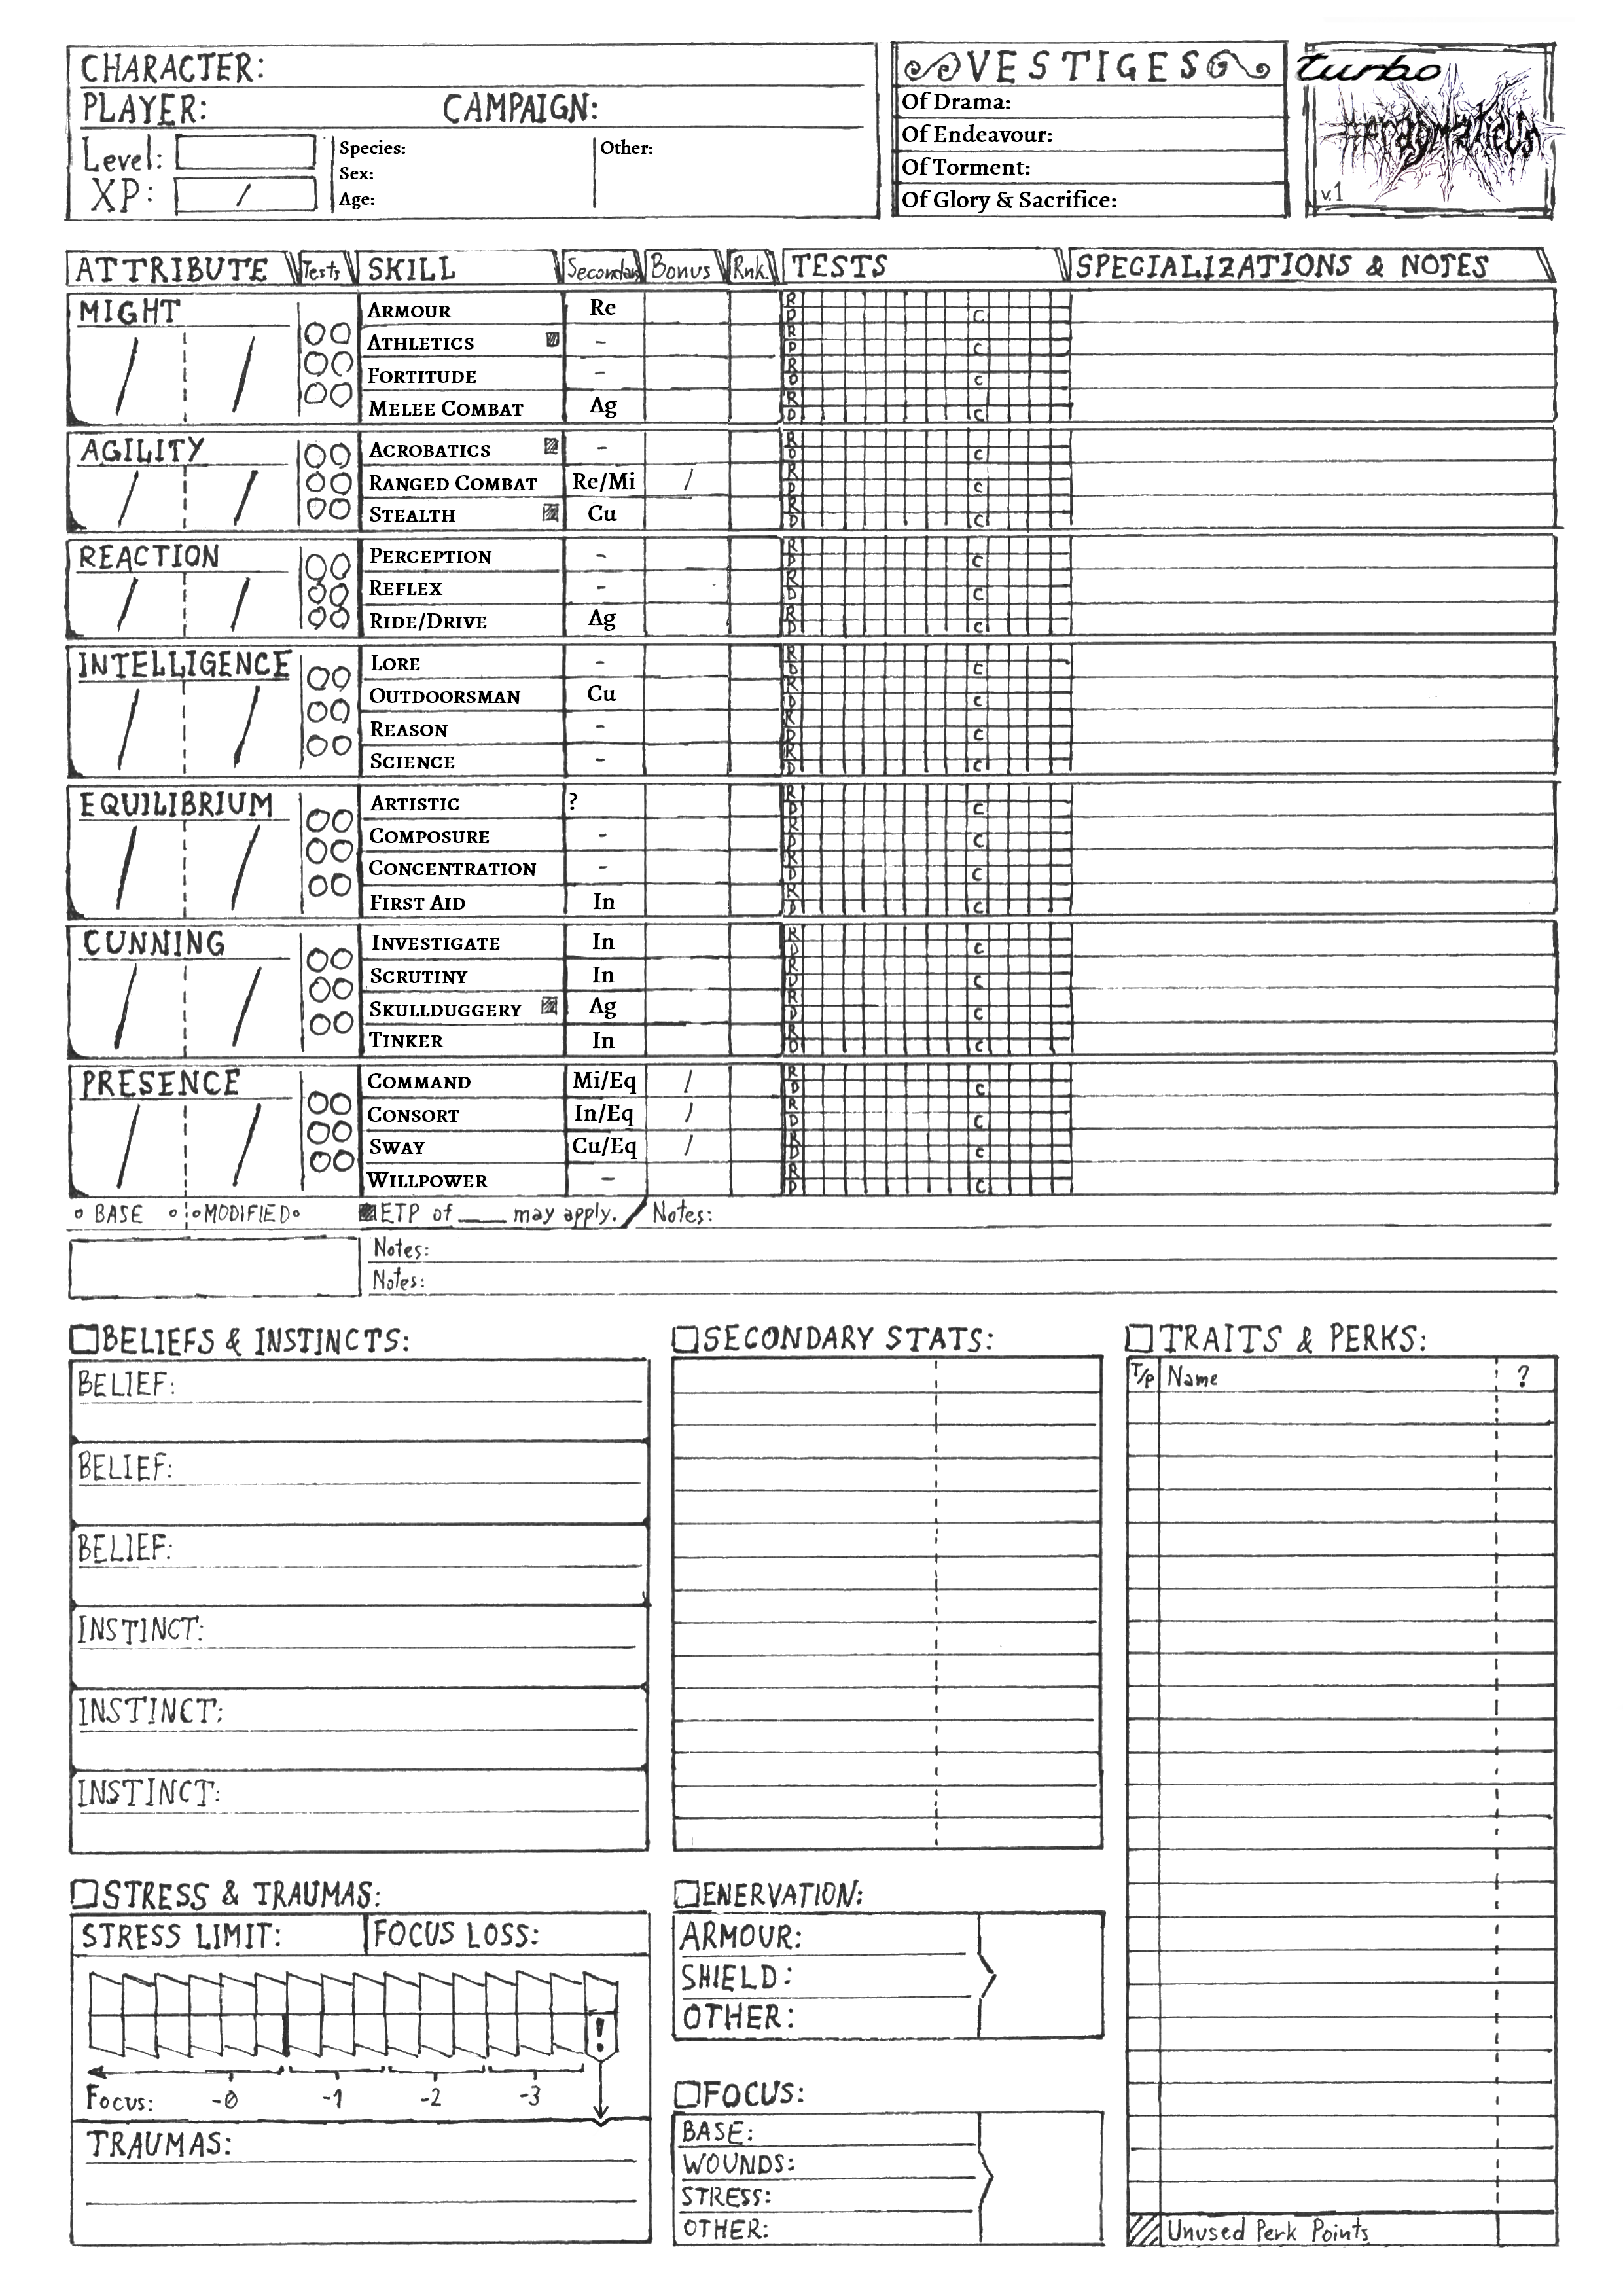 CHARACTER:
PLAYER: CAMPAIGN:
Level:
XP: /
Species:
Sex:
Age:
Other:
VESTIGES
Of Drama:
Of Endeavour:
Of Torment:
Of Glory & Sacrifice:
turbo
#pragmaticus
v.1
ATTRIBUTE Tests SKILL Secondary Bonus Rnk. TESTS SPECIALIZATIONS & NOTES
MIGHT
ARMOUR Re R D C
ATHLETICS - R D C
FORTITUDE - R D C
MELEE COMBAT Ag R D C
AGILITY
ACROBATICS - R D C
RANGED COMBAT Re/Mi / R D C
STEALTH Cu R D C
REACTION
PERCEPTION - R D C
REFLEX - R D C
RIDE/DRIVE Ag R D C
INTELLIGENCE
LORE - R D C
OUTDOORSMAN Cu R D C
REASON - R D C
SCIENCE - R D C
EQUILIBRIUM
ARTISTIC ? R D C
COMPOSURE - R D C
CONCENTRATION - R D C
FIRST AID In R D C
CUNNING
INVESTIGATE In R D C
SCRUTINY In R D C
SKULLDUGGERY Ag R D C
TINKER In R D C
PRESENCE
COMMAND Mi/Eq / R D C
CONSORT In/Eq / R D C
SWAY Cu/Eq / R D C
WILLPOWER - R D C
BASE MODIFIED ETP of ____ may apply. / Notes:
Notes:
Notes:
BELIEFS & INSTINCTS:
BELIEF:
BELIEF:
BELIEF:
INSTINCT:
INSTINCT:
INSTINCT:
SECONDARY STATS:
TRAITS & PERKS:
T/P Name ?
Unused Perk Points
STRESS & TRAUMAS:
STRESS LIMIT: FOCUS LOSS:
!
Focus: -0 -1 -2 -3
TRAUMAS:
ENERVATION:
ARMOUR:
SHIELD:
OTHER:
FOCUS:
BASE:
WOUNDS:
STRESS:
OTHER: